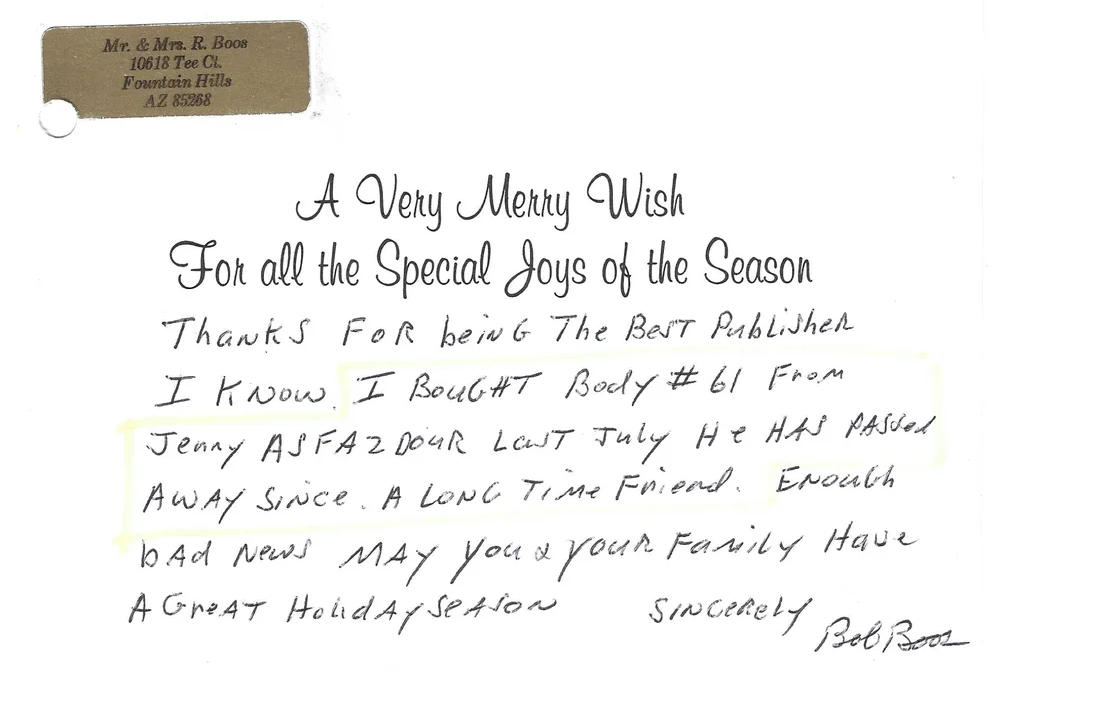 Mr. & Mrs. R. Boos
10618 Tee Ct.
Fountain Hills
AZ 85268
A Very Merry Wish
For all the Special Joys of the Season
Thanks FOR being The Best Publisher
I Know. I Bought Body #61 From
Jenny ASFAZDOUR Last July He HAS PASSed
AWAY Since. A LONG Time Friend. Enough
bAd News MAY you & your Family Have
A GreAT HolidAy SEASON Sincerely
Bob Boos